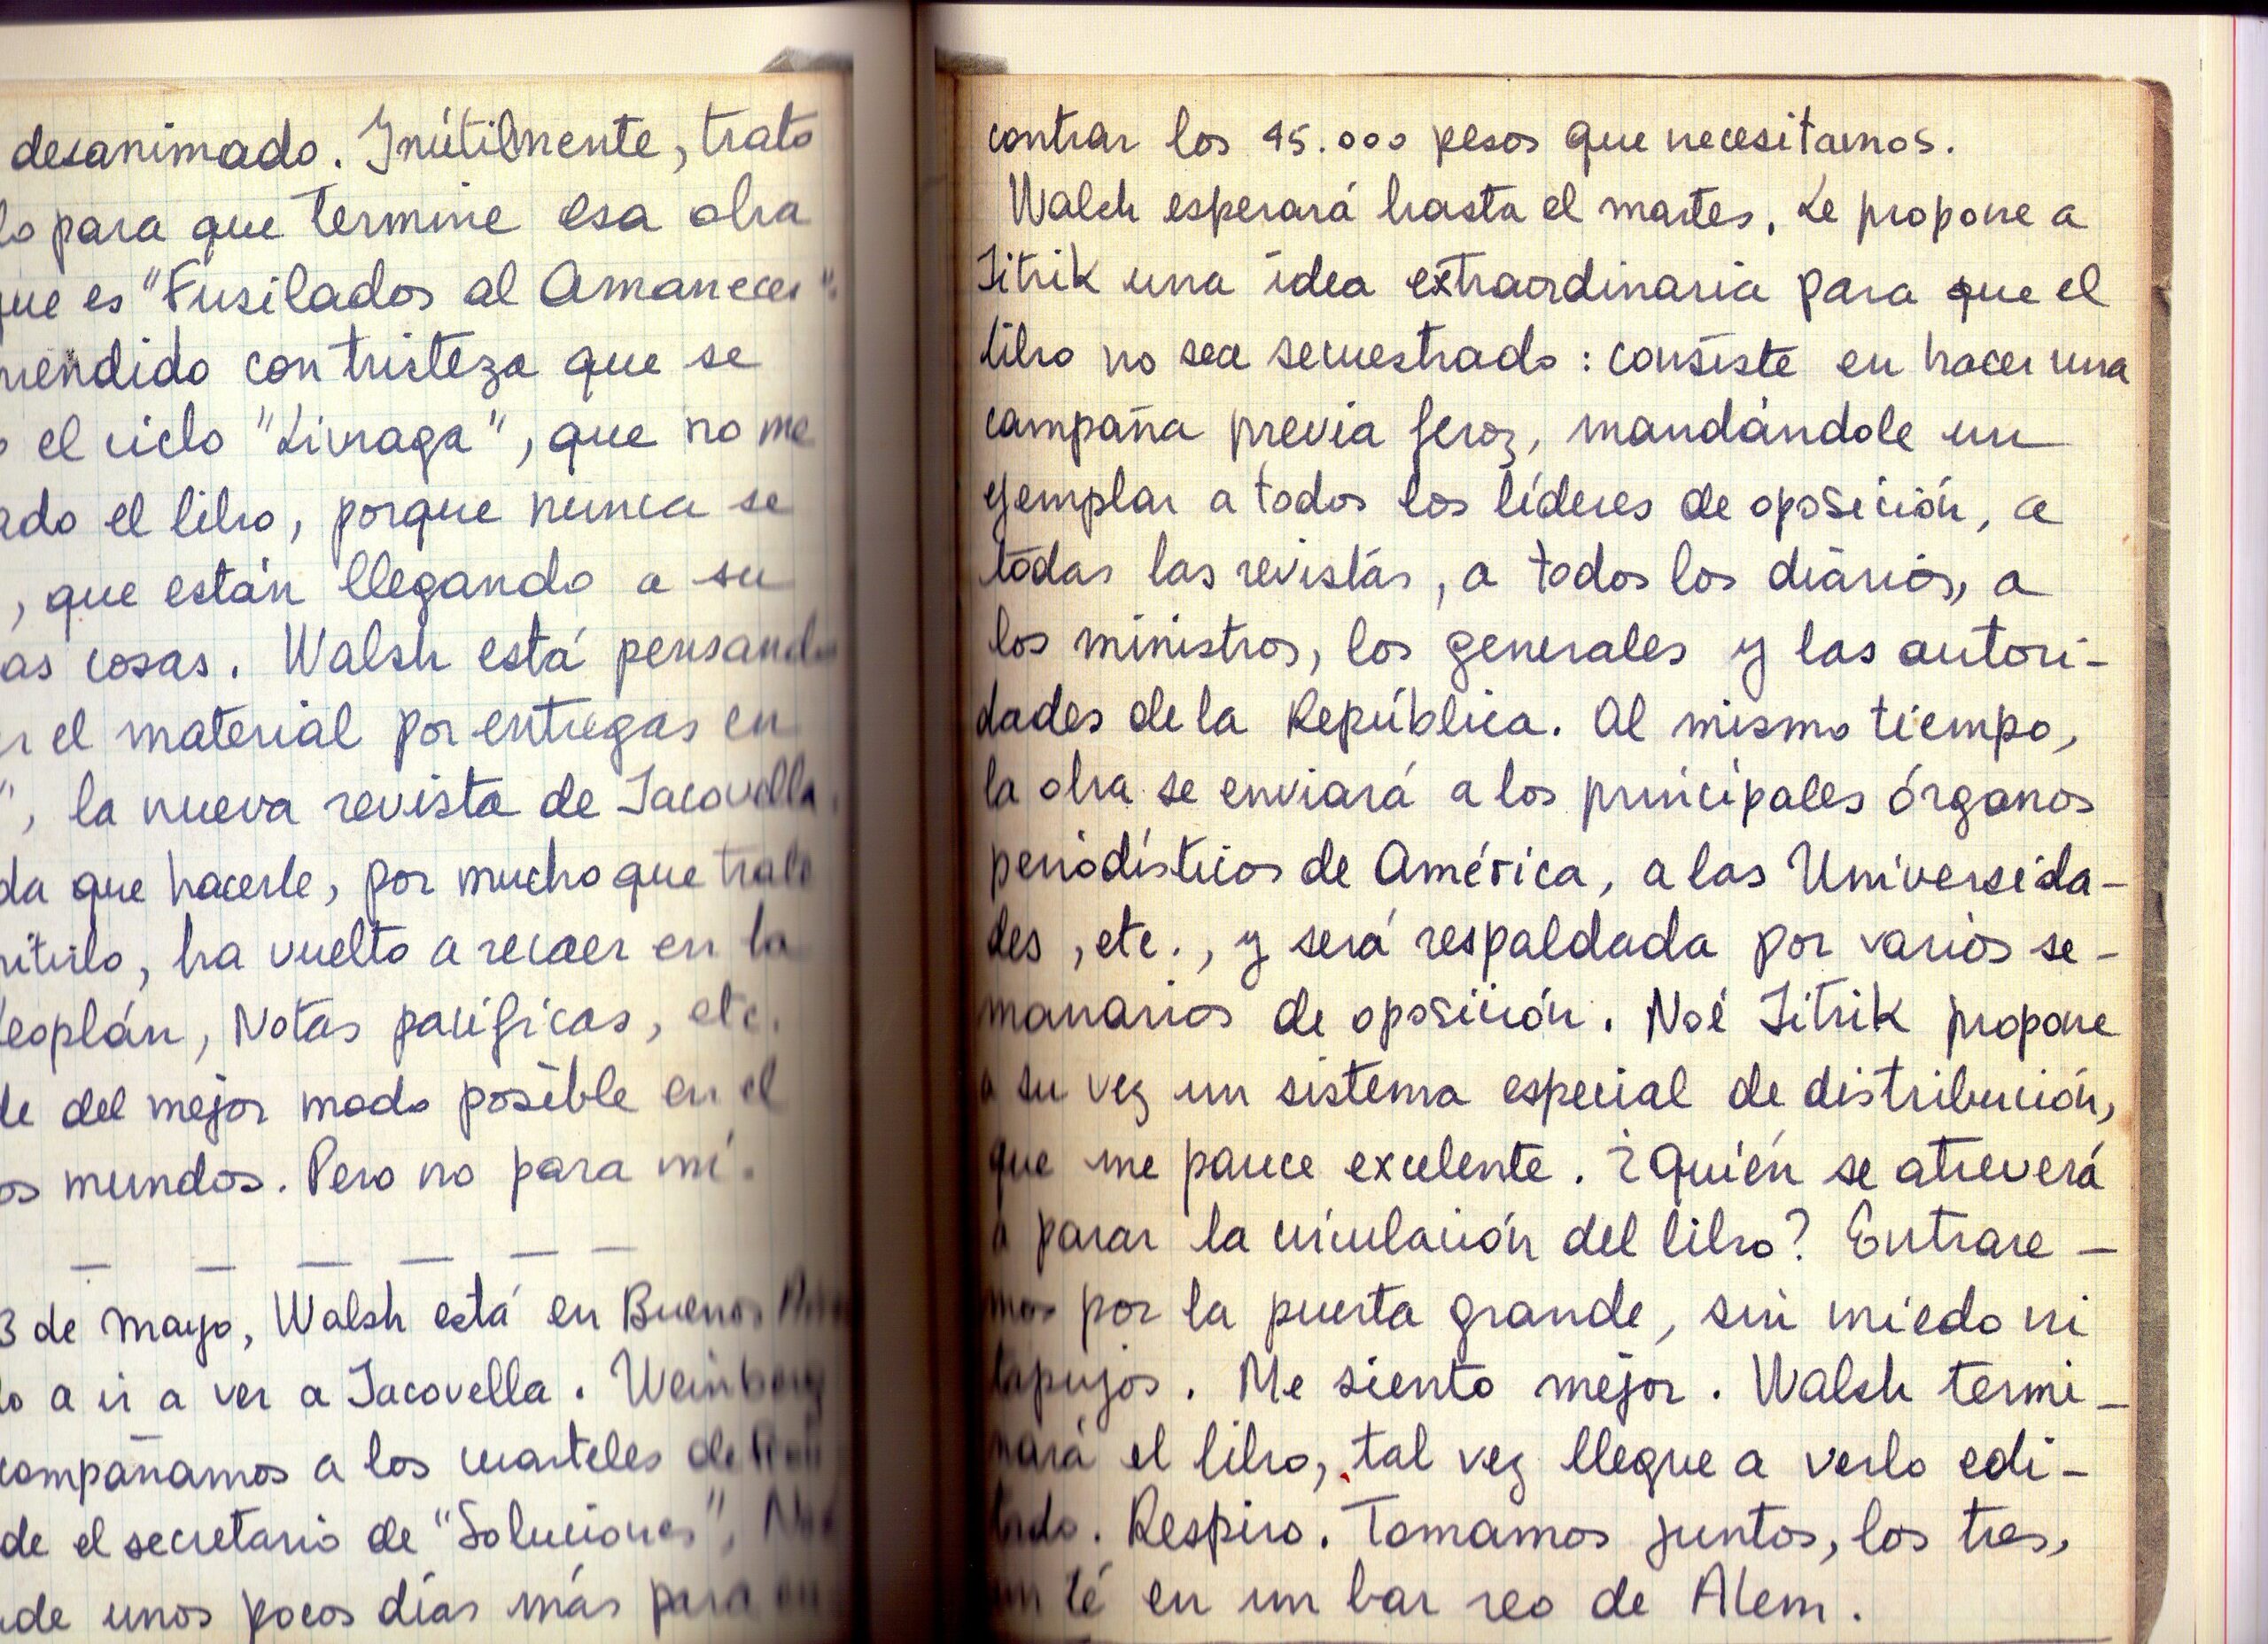 desanimado. Inútilmente, trato
para que termine esa obra
es "Fusilados al Amanecer".
con tristeza que se
el ciclo "Livraga", que no me
el libro, porque nunca se
, que están llegando a su
cosas. Walsh está pensando
el material por entregas en
", la nueva revista de Jacovella,
que hacerle, por mucho que trate
ha vuelto a recaer en la
Notas pacíficas, etc.
del mejor modo posible en el
mundos. Pero no para mí.
— — — — — —
3 de mayo, Walsh está en Buenos
a ir a ver a Jacovella. Weinberg
a los cuarteles de
el secretario de "Soluciones",
unos pocos días más para en
contrar los 45.000 pesos que necesitamos.
Walsh esperará hasta el martes. Le propone a
Jitrik una idea extraordinaria para que el
libro no sea secuestrado: consiste en hacer una
campaña previa feroz, mandándole un
ejemplar a todos los líderes de oposición, a
todas las revistas, a todos los diarios, a
los ministros, los generales y las autori-
dades de la República. Al mismo tiempo,
la obra se enviará a los principales órganos
periodísticos de América, a las Universida-
des, etc., y será respaldada por varios se-
manarios de oposición. Noé Jitrik propone
a su vez un sistema especial de distribución,
que me parece excelente. ¿Quién se atreverá
a parar la circulación del libro? Entrare-
mos por la puerta grande, sin miedo ni
tapujos. Me siento mejor. Walsh termi-
nará el libro, tal vez llegue a verlo edi-
tado. Respiro. Tomamos juntos, los tres,
un té en un bar reo de Alem.